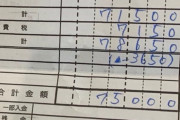 計 71500
費税 7150
計 78650
(▲3650)
合計金額 75000
一部入金